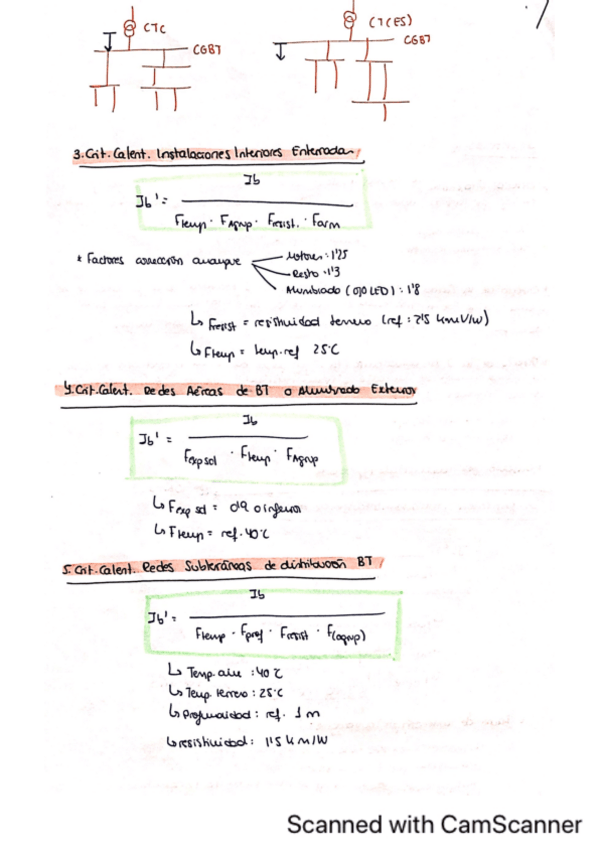 CTC
CGBT
CT(ES)
CGBT
3. Crit. Calent. Instalaciones Interiores Enterradas
Ib
Ib' =
Ftemp · FAgrup · Fresist. · Farm
* Factores corrección arranque
Motores: 1'25
Resto: 1'3
Alumbrado (ojo LED): 1'8
↳ Fresist = resistividad terreno (ref: 2'5 K·m/W)
↳ Ftemp = temp. ref 25°C
4. Crit. Calent. Redes Aéreas de BT o Alumbrado Exterior
Ib
Ib' =
Fexp sol · Ftemp · FAgrup
↳ Fexp sol = 0'9 o inferior
↳ Ftemp = ref. 40°C
5. Crit. Calent. Redes Subterráneas de distribución BT
Ib
Ib' =
Ftemp · Fprof · Fresist · F(agrup)
↳ Temp. aire: 40°C
↳ Temp. terreno: 25°C
↳ Profundidad: ref. 1 m
↳ resistividad: 1'5 K m/W
Scanned with CamScanner